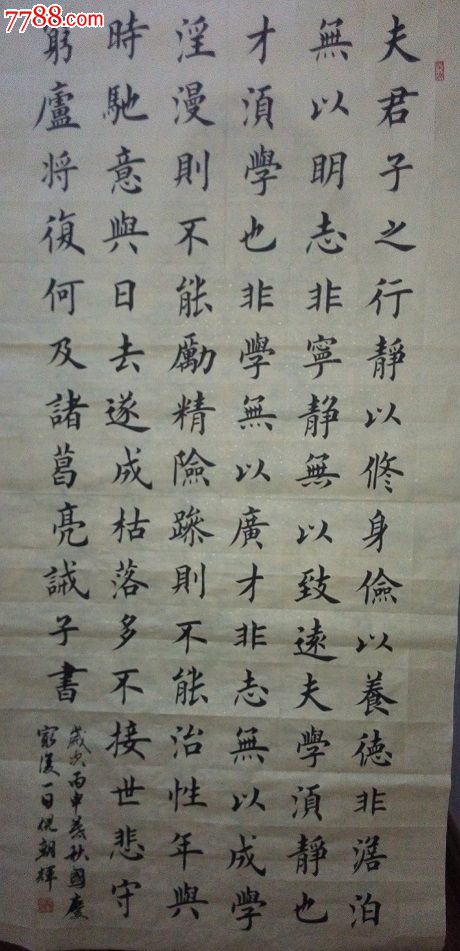 7788.com
夫君子之行靜以修身儉以養德非澹泊
無以明志非寧靜無以致遠夫學須靜也
才須學也非學無以廣才非志無以成學
淫漫則不能勵精險躁則不能治性年與
時馳意與日去遂成枯落多不接世悲守
窮廬將復何及諸葛亮誡子書
歲次丙申秋國慶
後一日倪朝輝